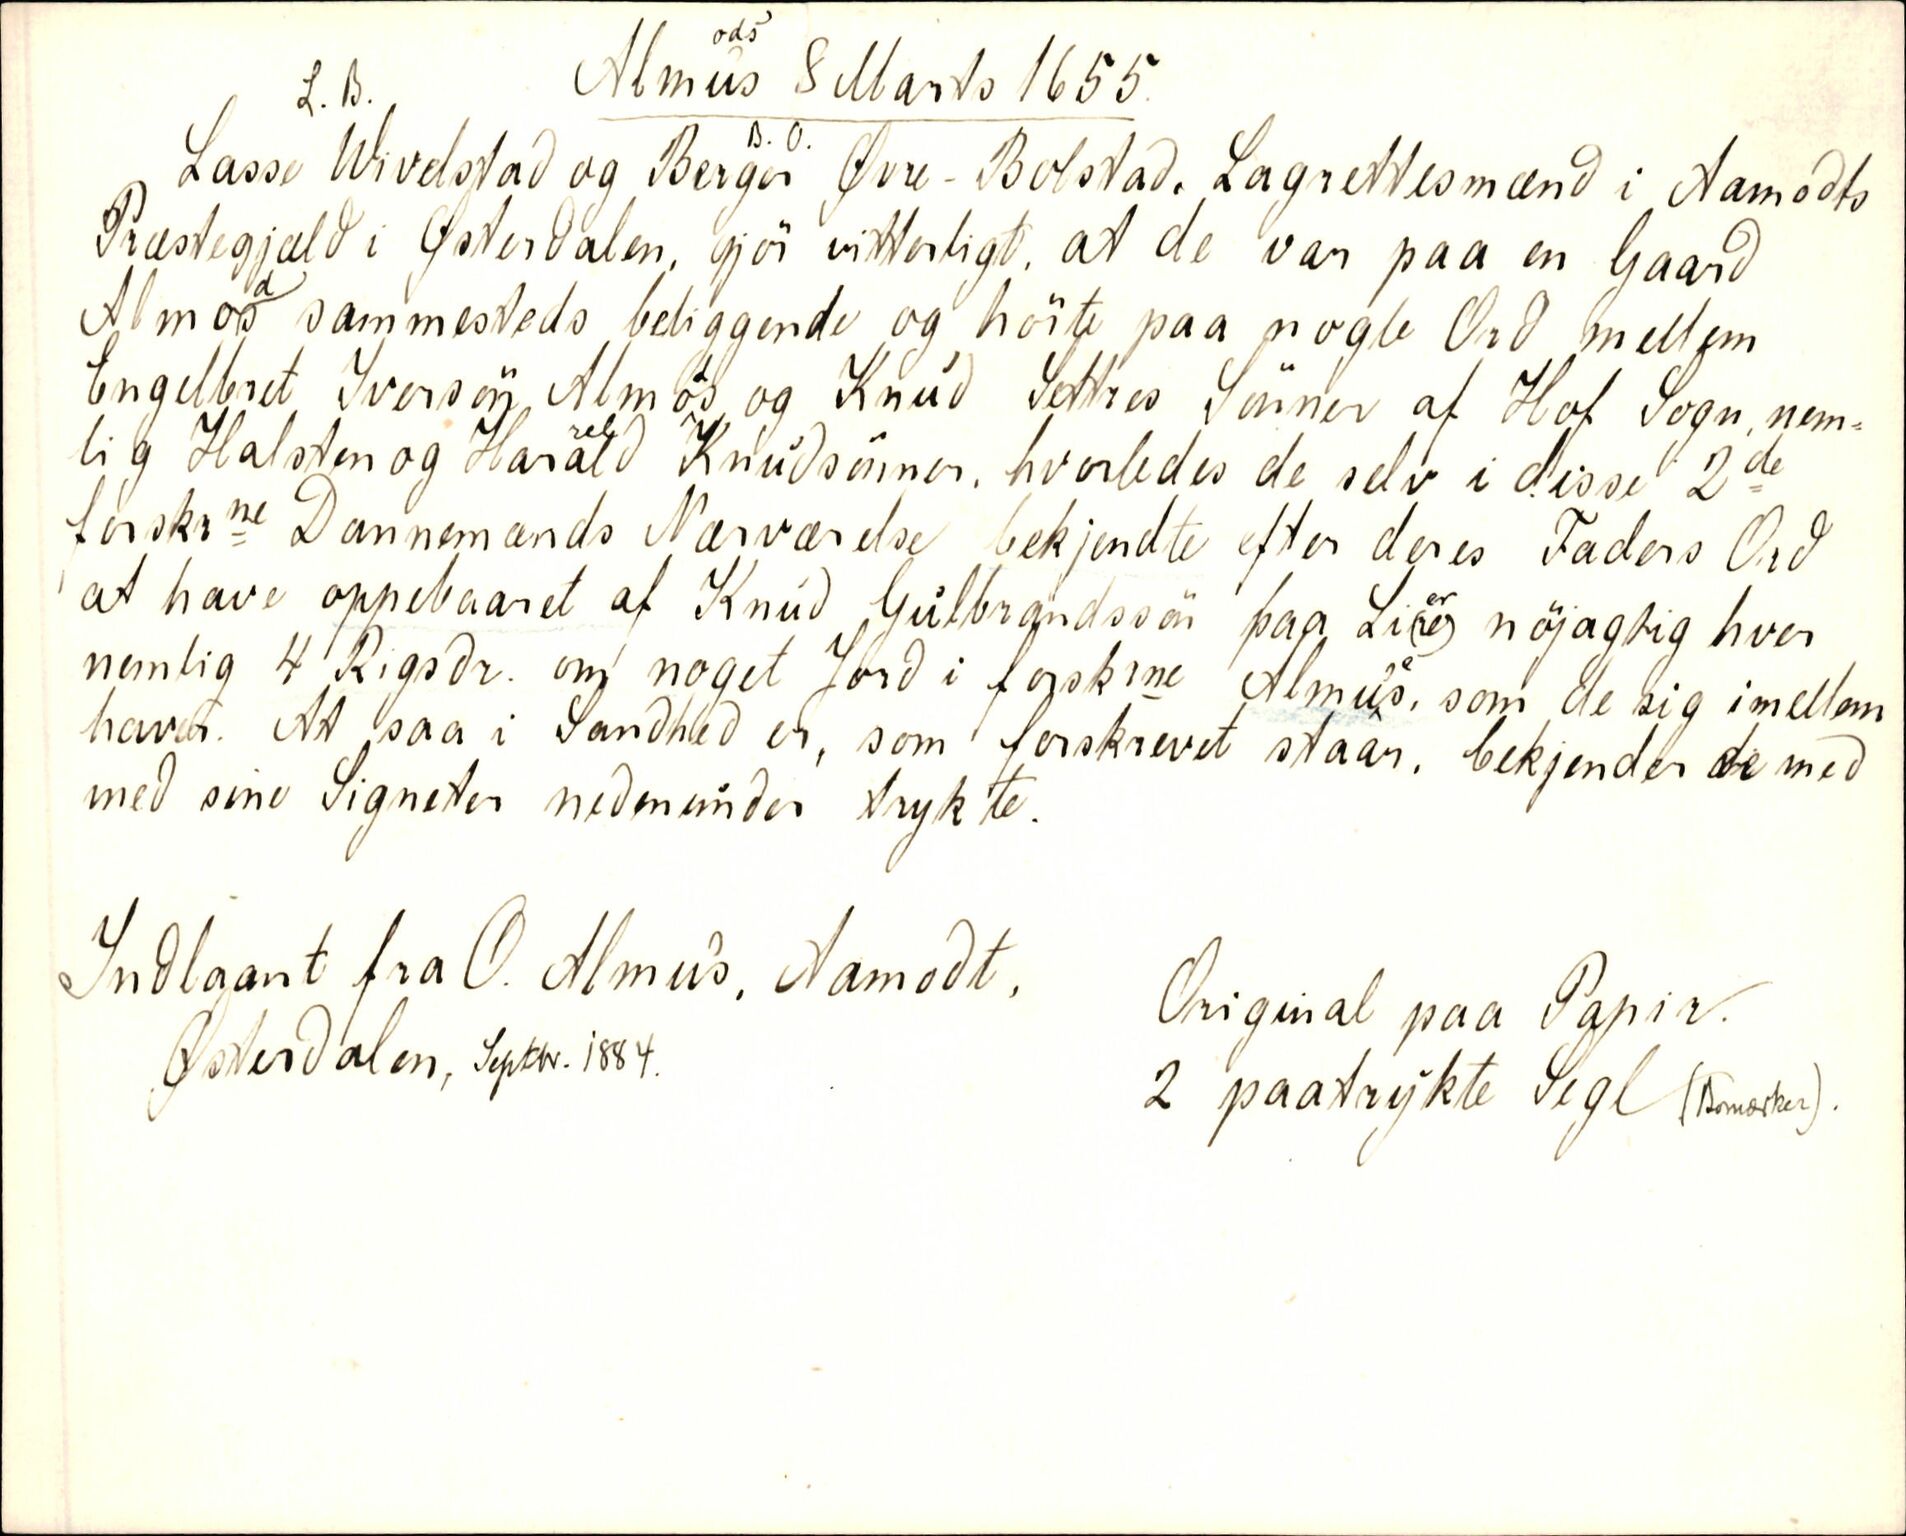 ods
Almus 8 Marts 1655.
L. B.
B. O.
Lasse Wivelstad og Berger Øvre-Bolstad, Lagrettesmænd i Aamodts
Præstegjæld i Østerdalen, gjör vitterligt, at de var paa en Gaard
Almos sammesteds beliggende og hörte paa nogle Ord mellem
Engelbret Iversön Almos og Knud Settres Sönner af Hof Sogn, nem-
lig Halsten og Harald Knudsönner, hvorledes de selv i disse 2de
forskrne Dannemænds Nærværelse bekjendte efter deres Faders Ord
at have oppebaaret af Knud Gulbrandssön paa Lier nöjagtig hver
nemlig 4 Rigsdr. om noget Jord i forskrne Almus, som de sig imellem
haver. At saa i Sandhed er, som forskrevet staar, bekjender de med
med sine Signeter nedenunder trykte.
Indlaant fra O. Almus, Aamodt,
Østerdalen, Septbr. 1884.
Original paa Papir.
2 paatrykte Segl (Bomærker).